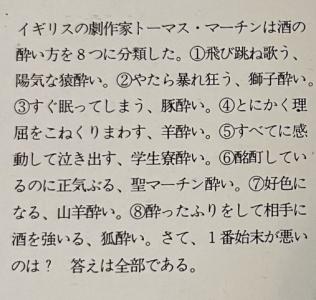 イギリスの劇作家トーマス・マーチンは酒の
酔い方を８つに分類した。①飛び跳ね歌う、
陽気な猿酔い。②やたら暴れ狂う、獅子酔い。
③すぐ眠ってしまう、豚酔い。④とにかく理
屈をこねくりまわす、羊酔い。⑤すべてに感
動して泣き出す、学生寮酔い。⑥酩酊してい
るのに正気ぶる、聖マーチン酔い。⑦好色に
なる、山羊酔い。⑧酔ったふりをして相手に
酒を強いる、狐酔い。さて、１番始末が悪い
のは？　答えは全部である。